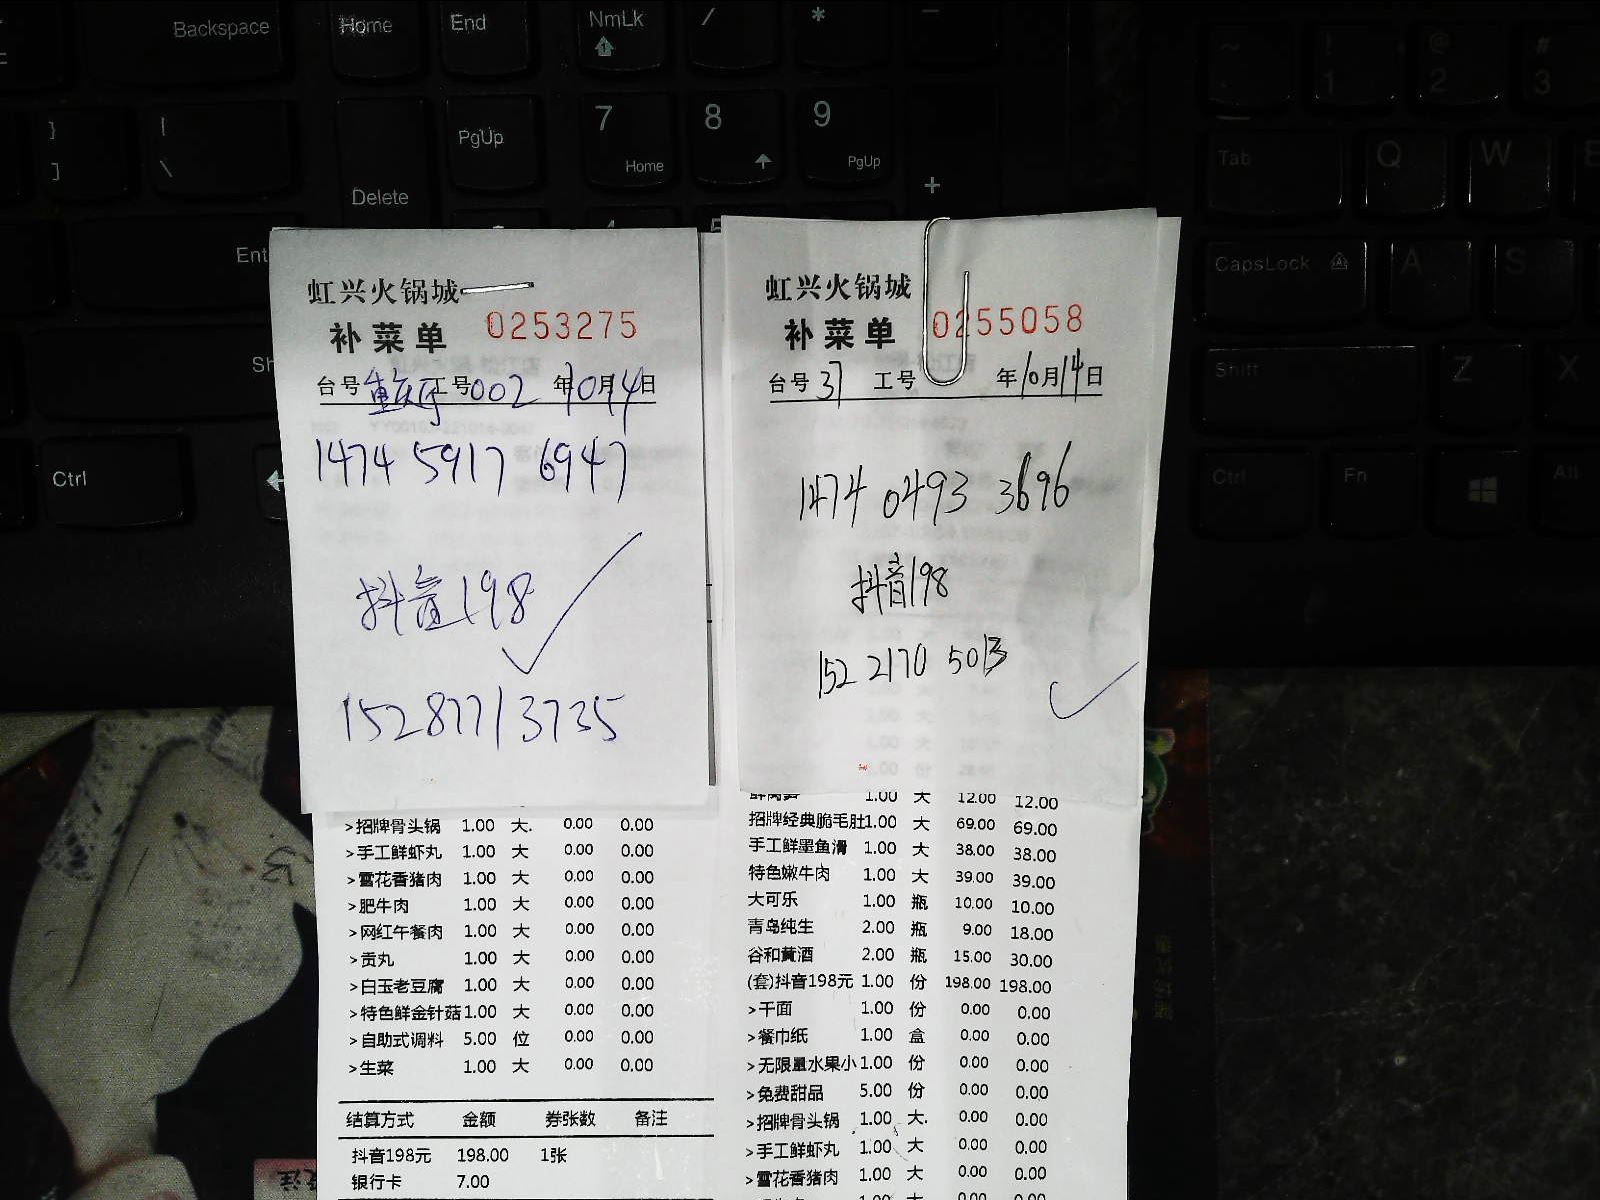 Backspace
Home
End
NmLk
/
*
7
Home
8
9
PgUp
+
PgUp
Delete
}
]
|
\
Ctrl
~
!
1
@
2
#
3
Tab
Q
W
CapsLock
A
S
Shift
Z
X
Ctrl
Fn
Alt
虹兴火锅城
补菜单 0253275
台号重庆厅工号002 年10月14日
1474 5917 6947
抖音198
15287713735
>招牌骨头锅 1.00 大. 0.00 0.00
>手工鲜虾丸 1.00 大 0.00 0.00
>雪花香猪肉 1.00 大 0.00 0.00
>肥牛肉 1.00 大 0.00 0.00
>网红午餐肉 1.00 大 0.00 0.00
>贡丸 1.00 大 0.00 0.00
>白玉老豆腐 1.00 大 0.00 0.00
>特色鲜金针菇1.00 大 0.00 0.00
>自助式调料 5.00 位 0.00 0.00
>生菜 1.00 大 0.00 0.00
结算方式 金额 券张数 备注
抖音198元 198.00 1张
银行卡 7.00
虹兴火锅城
补菜单 0255058
台号37 工号 年10月14日
1474 0493 3696
抖音198
152 2170 5013
1.00 大 12.00 12.00
招牌经典脆毛肚1.00 大 69.00 69.00
手工鲜墨鱼滑 1.00 大 38.00 38.00
特色嫩牛肉 1.00 大 39.00 39.00
大可乐 1.00 瓶 10.00 10.00
青岛纯生 2.00 瓶 9.00 18.00
谷和黄酒 2.00 瓶 15.00 30.00
(套)抖音198元 1.00 份 198.00 198.00
>干面 1.00 份 0.00 0.00
>餐巾纸 1.00 盒 0.00 0.00
>无限量水果小1.00 份 0.00 0.00
>免费甜品 5.00 份 0.00 0.00
>招牌骨头锅 1.00 大. 0.00 0.00
>手工鲜虾丸 1.00 大 0.00 0.00
>雪花香猪肉 1.00 大 0.00 0.00